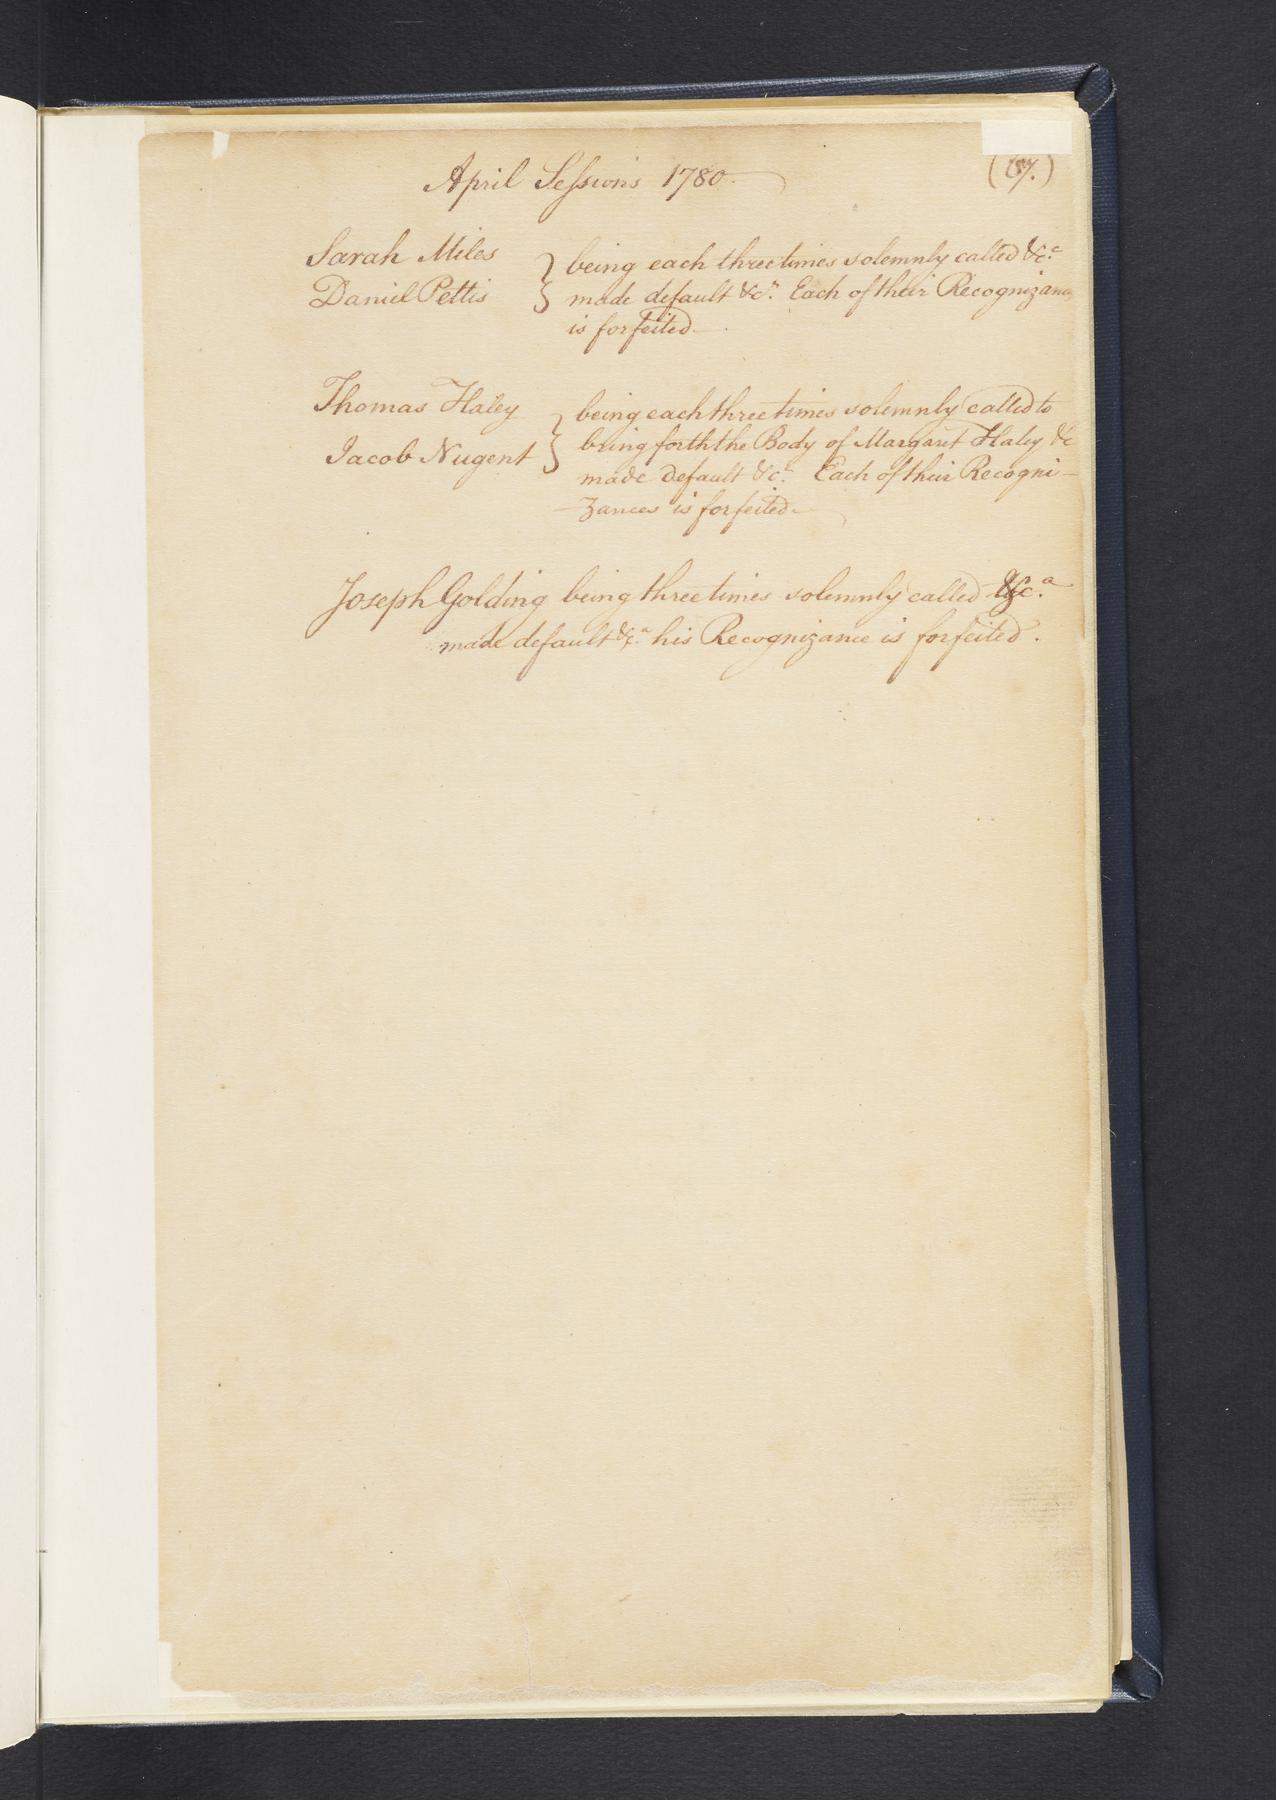 April Sessions 1780.
Sarah Miles } being each three times solemnly called &c.a
Daniel Pettis } made default &c.a Each of their Recognizances
is forfeited
Thomas Haley } being each three times solemnly called to
Jacob Nugent } bring forth the Body of Margaret Haley &c
made default &c.a Each of their Recogni-
-zances is forfeited
Joseph Golding being three times solemnly called &c.a
made default &c.a his Recognizance is forfeited.